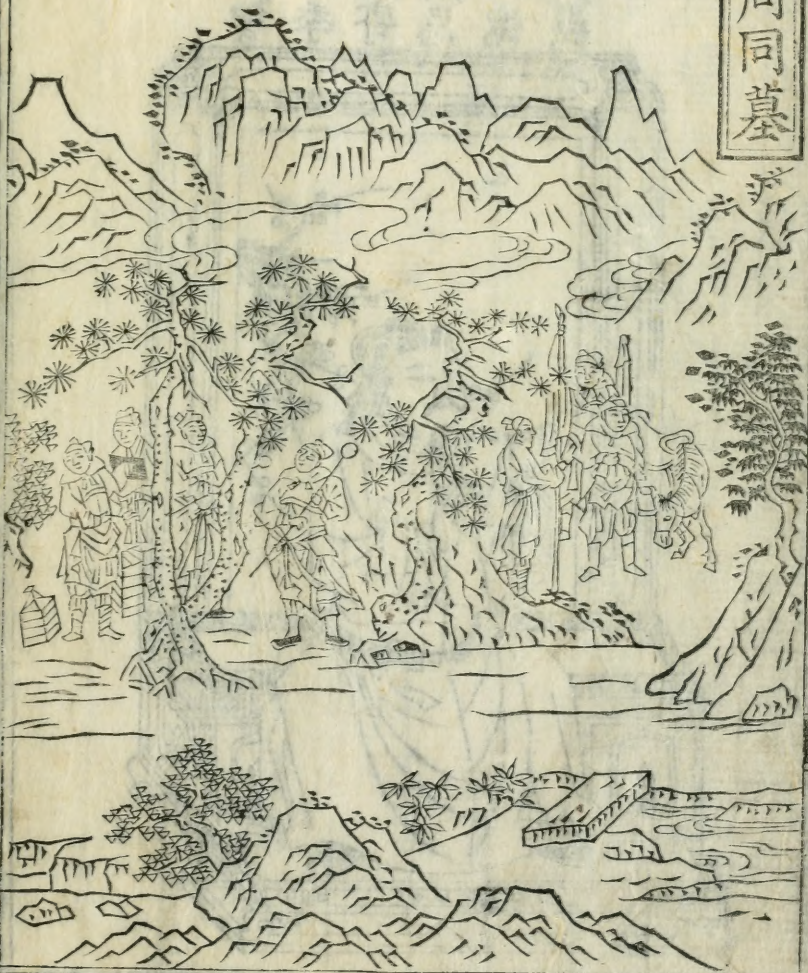 周同墓